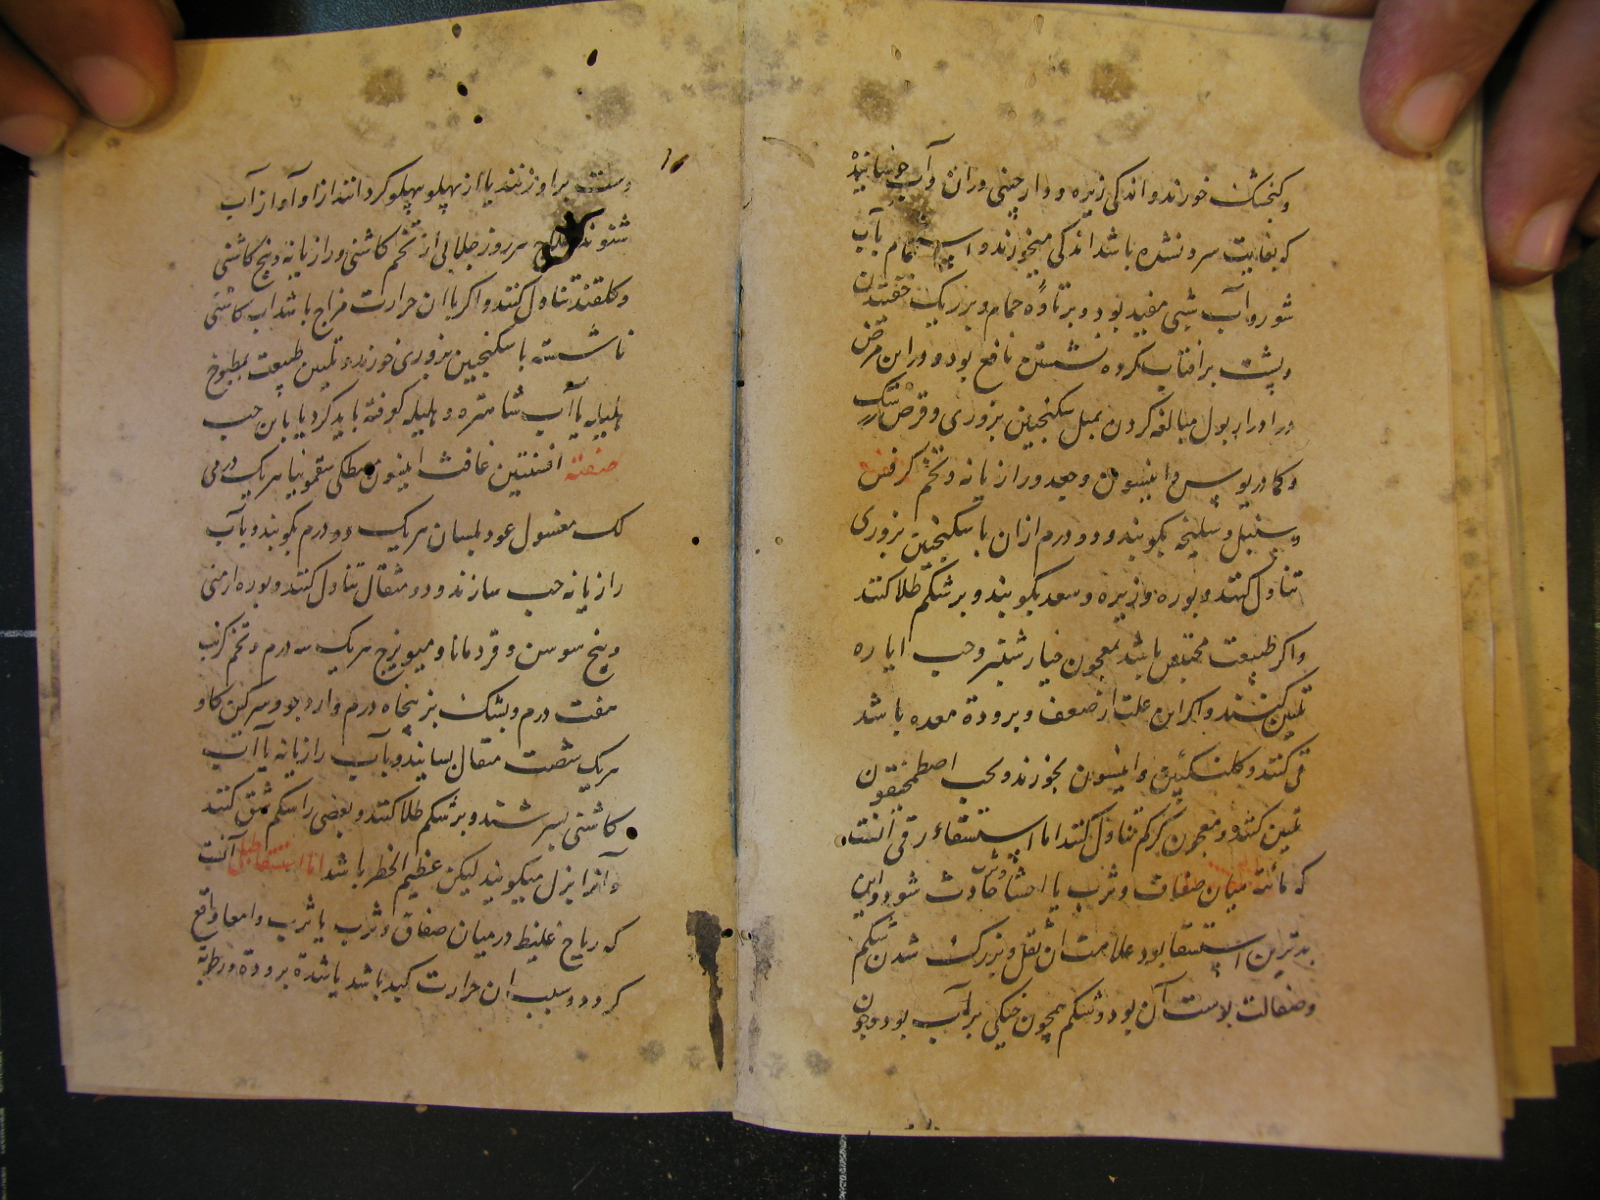 و کنجشک خورند و اندکی زیره و دارچینی دران و آب جوشانیده
که بغایت سرد نشده باشد اندکی میخورند و استحمام بآب
شور و آب شبی مفید بود و بر تاوهٔ حمام و بر ریک خفتیدن
و پشت بر افتاب کرده نشستن نافع بود و در این مرض
در ادرار بول مبالغه کردن بمثل سکنجبین بزوری و قرص
و کمادریوس و انیسون و جعد و رازیانه و تخم کرفس
و سنبل و سلیخه بکوبند و دو درم ازان با سکنجبین بزوری
تناول کنند و بوره و زیره و سعد بکوبند و بر شکم طلا کنند
و اکر طبیعت محتبس باشد بمعجون خیار شنبر و حب ایاره
تلیین کنند و اکر این علت از ضعف و برودة معده باشد
قی کنند و کلنکبین و انیسون بخورند و بحب اصطمخیقون
تلیین کنند و معجون کرکم تناول کنند اما استسقاء زقی آنست
که مائت میان صفاق و ثرب یا احشا حادث شود و این
بدترین استسقا بود علامت ان ثقل و بزرک شدن شکم
و صقالت پوست آن بود و شکم همچون خیکی پر آب بود و چون
دست بر او زنند یا از پهلو بپهلو کردانند از او آواز آب
شنوند علاج هر روز جلابی از تخم کاشنی و رازیانه و بیخ کاشنی
و کلقند تناول کنند و اکر با ان حرارت مزاج باشد اب کاشنی
ناشسته با سکنجبین بزوری خورند و تلیین طبیعت بمطبوخ
هلیله یا آب شاهتره و هلیله کوفته باید کرد یا باین حب
صفته افسنتین غافث انیسون مصطکی سقمونیا هریک درمی
لک مغسول عود بلسان هریک دو درم بکوبند و بآب
رازیانه حب سازند و دو مثقال تناول کنند و بوره ارمنی
و بیخ سوسن و قردمانا و میویزج هریک سه درم و تخم کرنب
هفت درم و پشک بز پنجاه درم و ارد جو و سرکین کاو
هریک شصت مثقال بسایند و بآب رازیانه یا آب
کاشنی بسرشند و بر شکم طلا کنند و بعضی را شکم شق کنند
و آنرا بزل میکویند لیکن عظیم الخطر باشد اما استسقا طبلی آنست
که ریاح غلیظ در میان صفاق و ثرب یا ثرب و امعا واقع
کردد و سبب ان حرارت کبد باشد یا شدة برودة و رطوبة